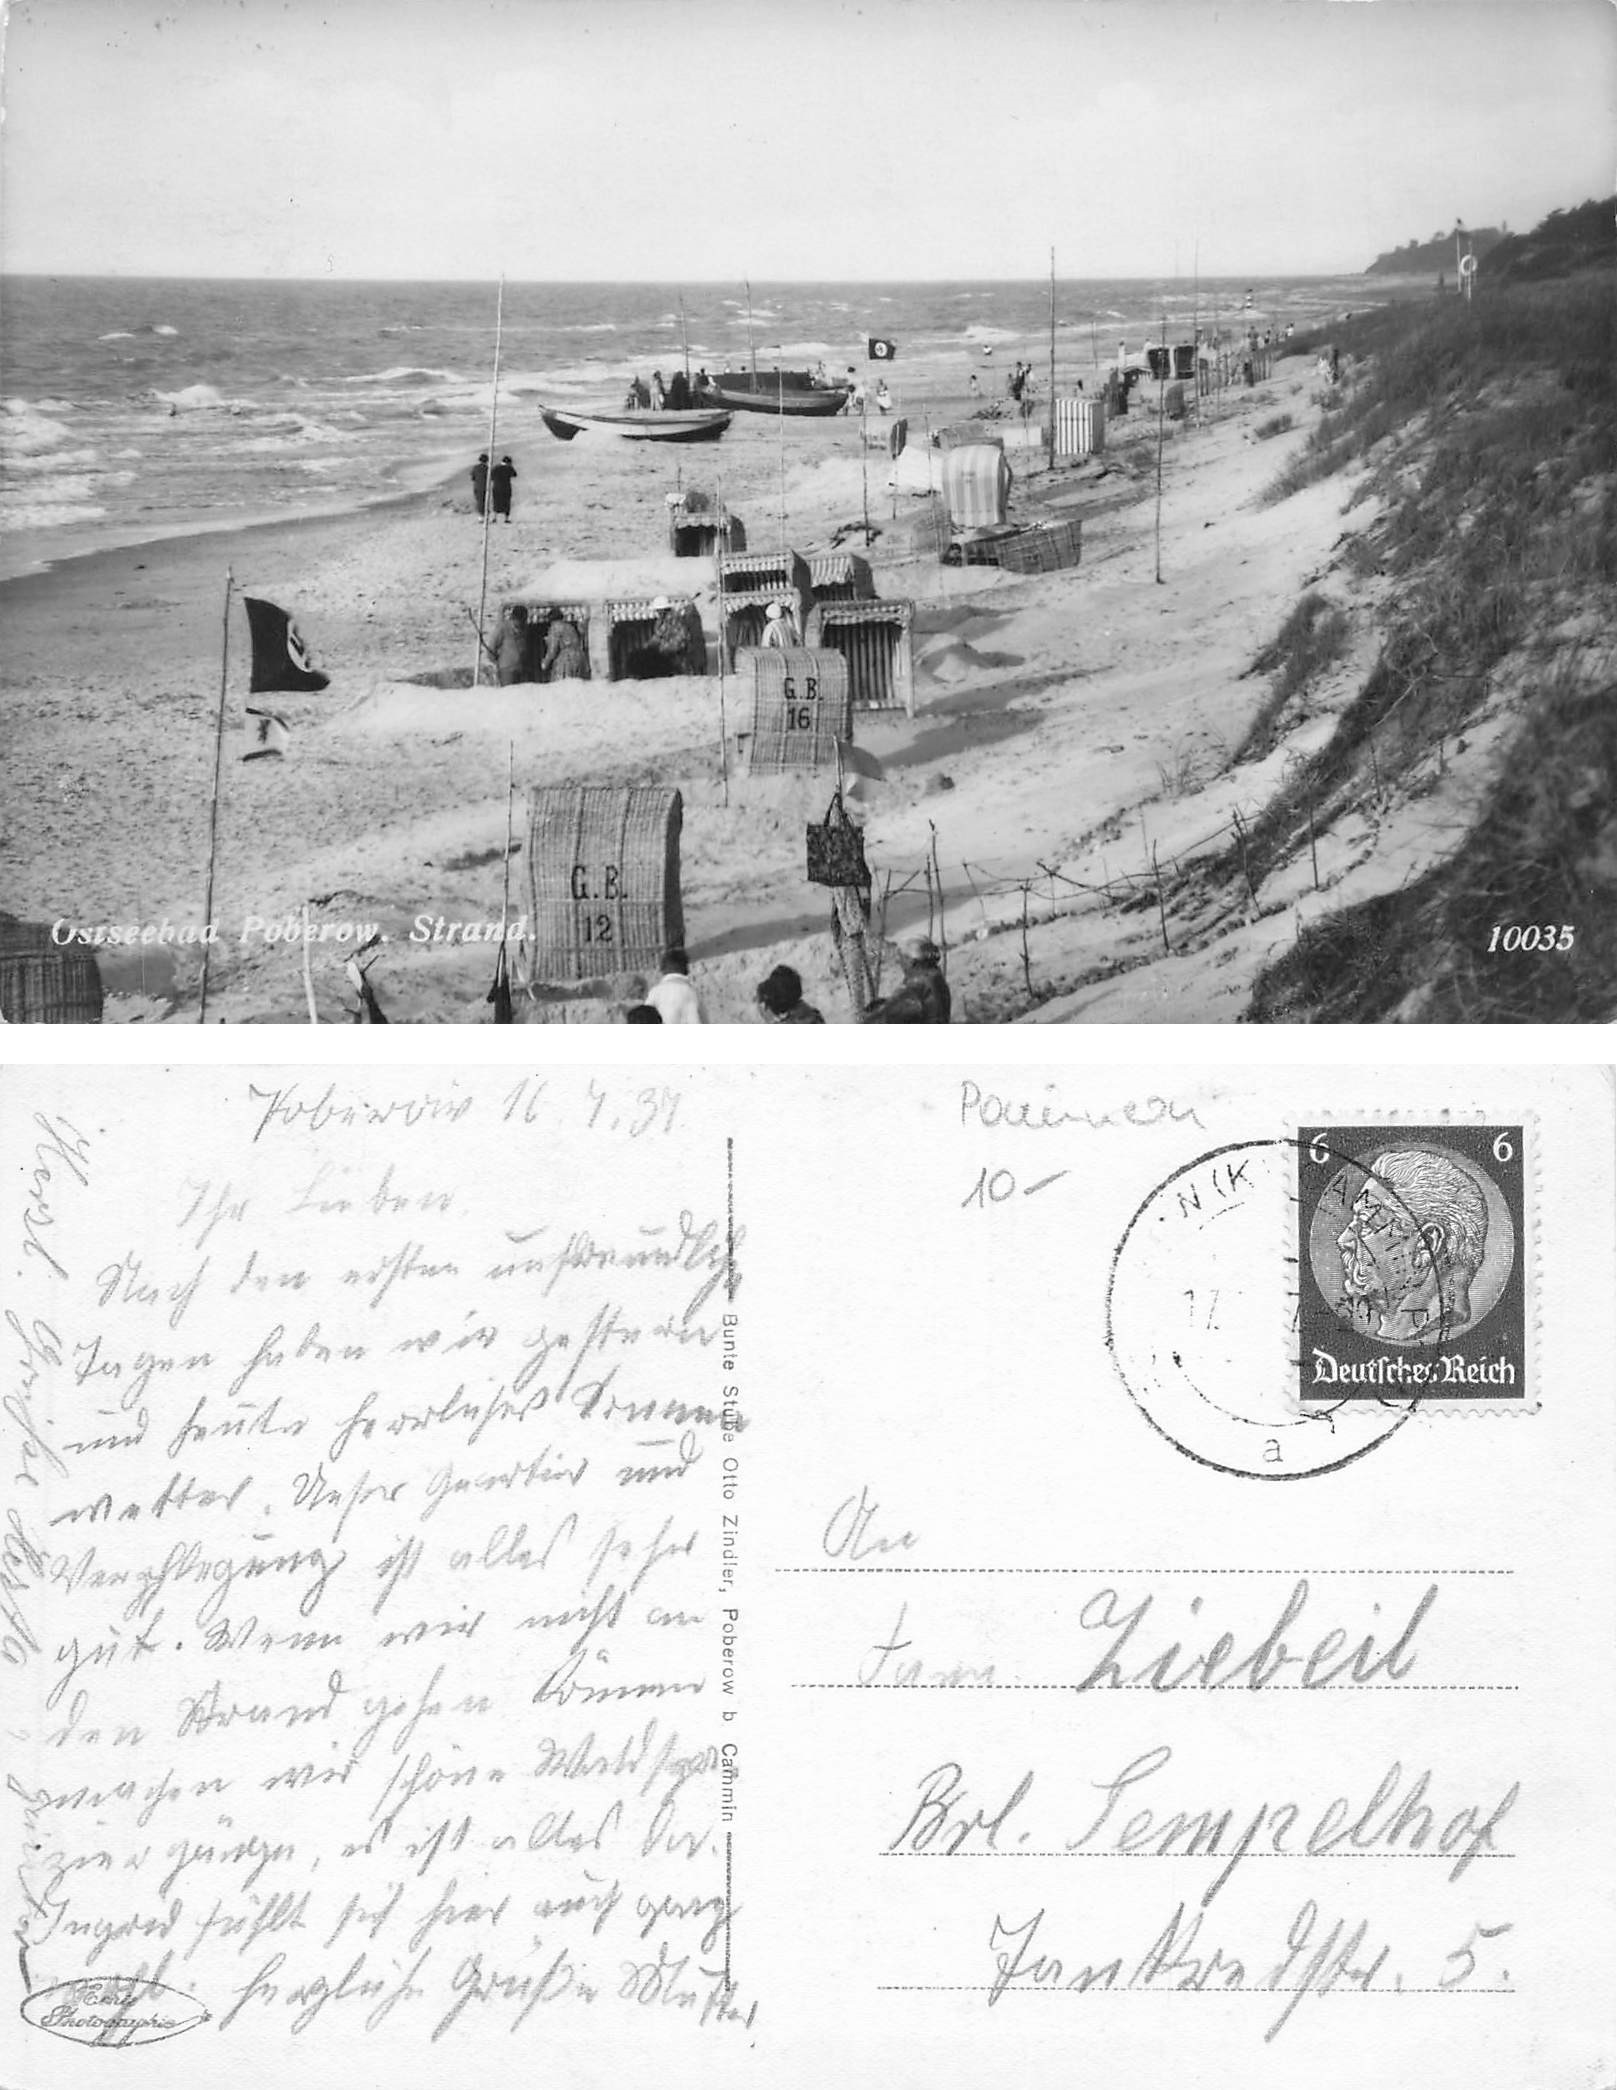 G.B.
16
G.B.
12
Ostseebad Poberow. Strand.
10035
Poberow 16.7.37.
Ihr Lieben.
Nach den ersten unfreundlich
Tagen haben wir gestern
und heute herrliches Sonnen
wetter. Unser Quartier und
Verpflegung ist alles sehr
gut. Wenn wir nicht an
den Strand gehen können
machen wir schöne Waldspa
ziergänge, es ist alles da.
Ingrid fühlt sich hier auch ganz
wohl. herzliche Grüße Mutter
Herzl. Grüße Herta
Bunte Stube Otto Zindler, Poberow b Cammin
Echte
Photographie
Pommern
10-
6 6
Deutsches Reich
17.
a
An
Fam. Ziebeil
Brl. Tempelhof
Tankredstr. 5.